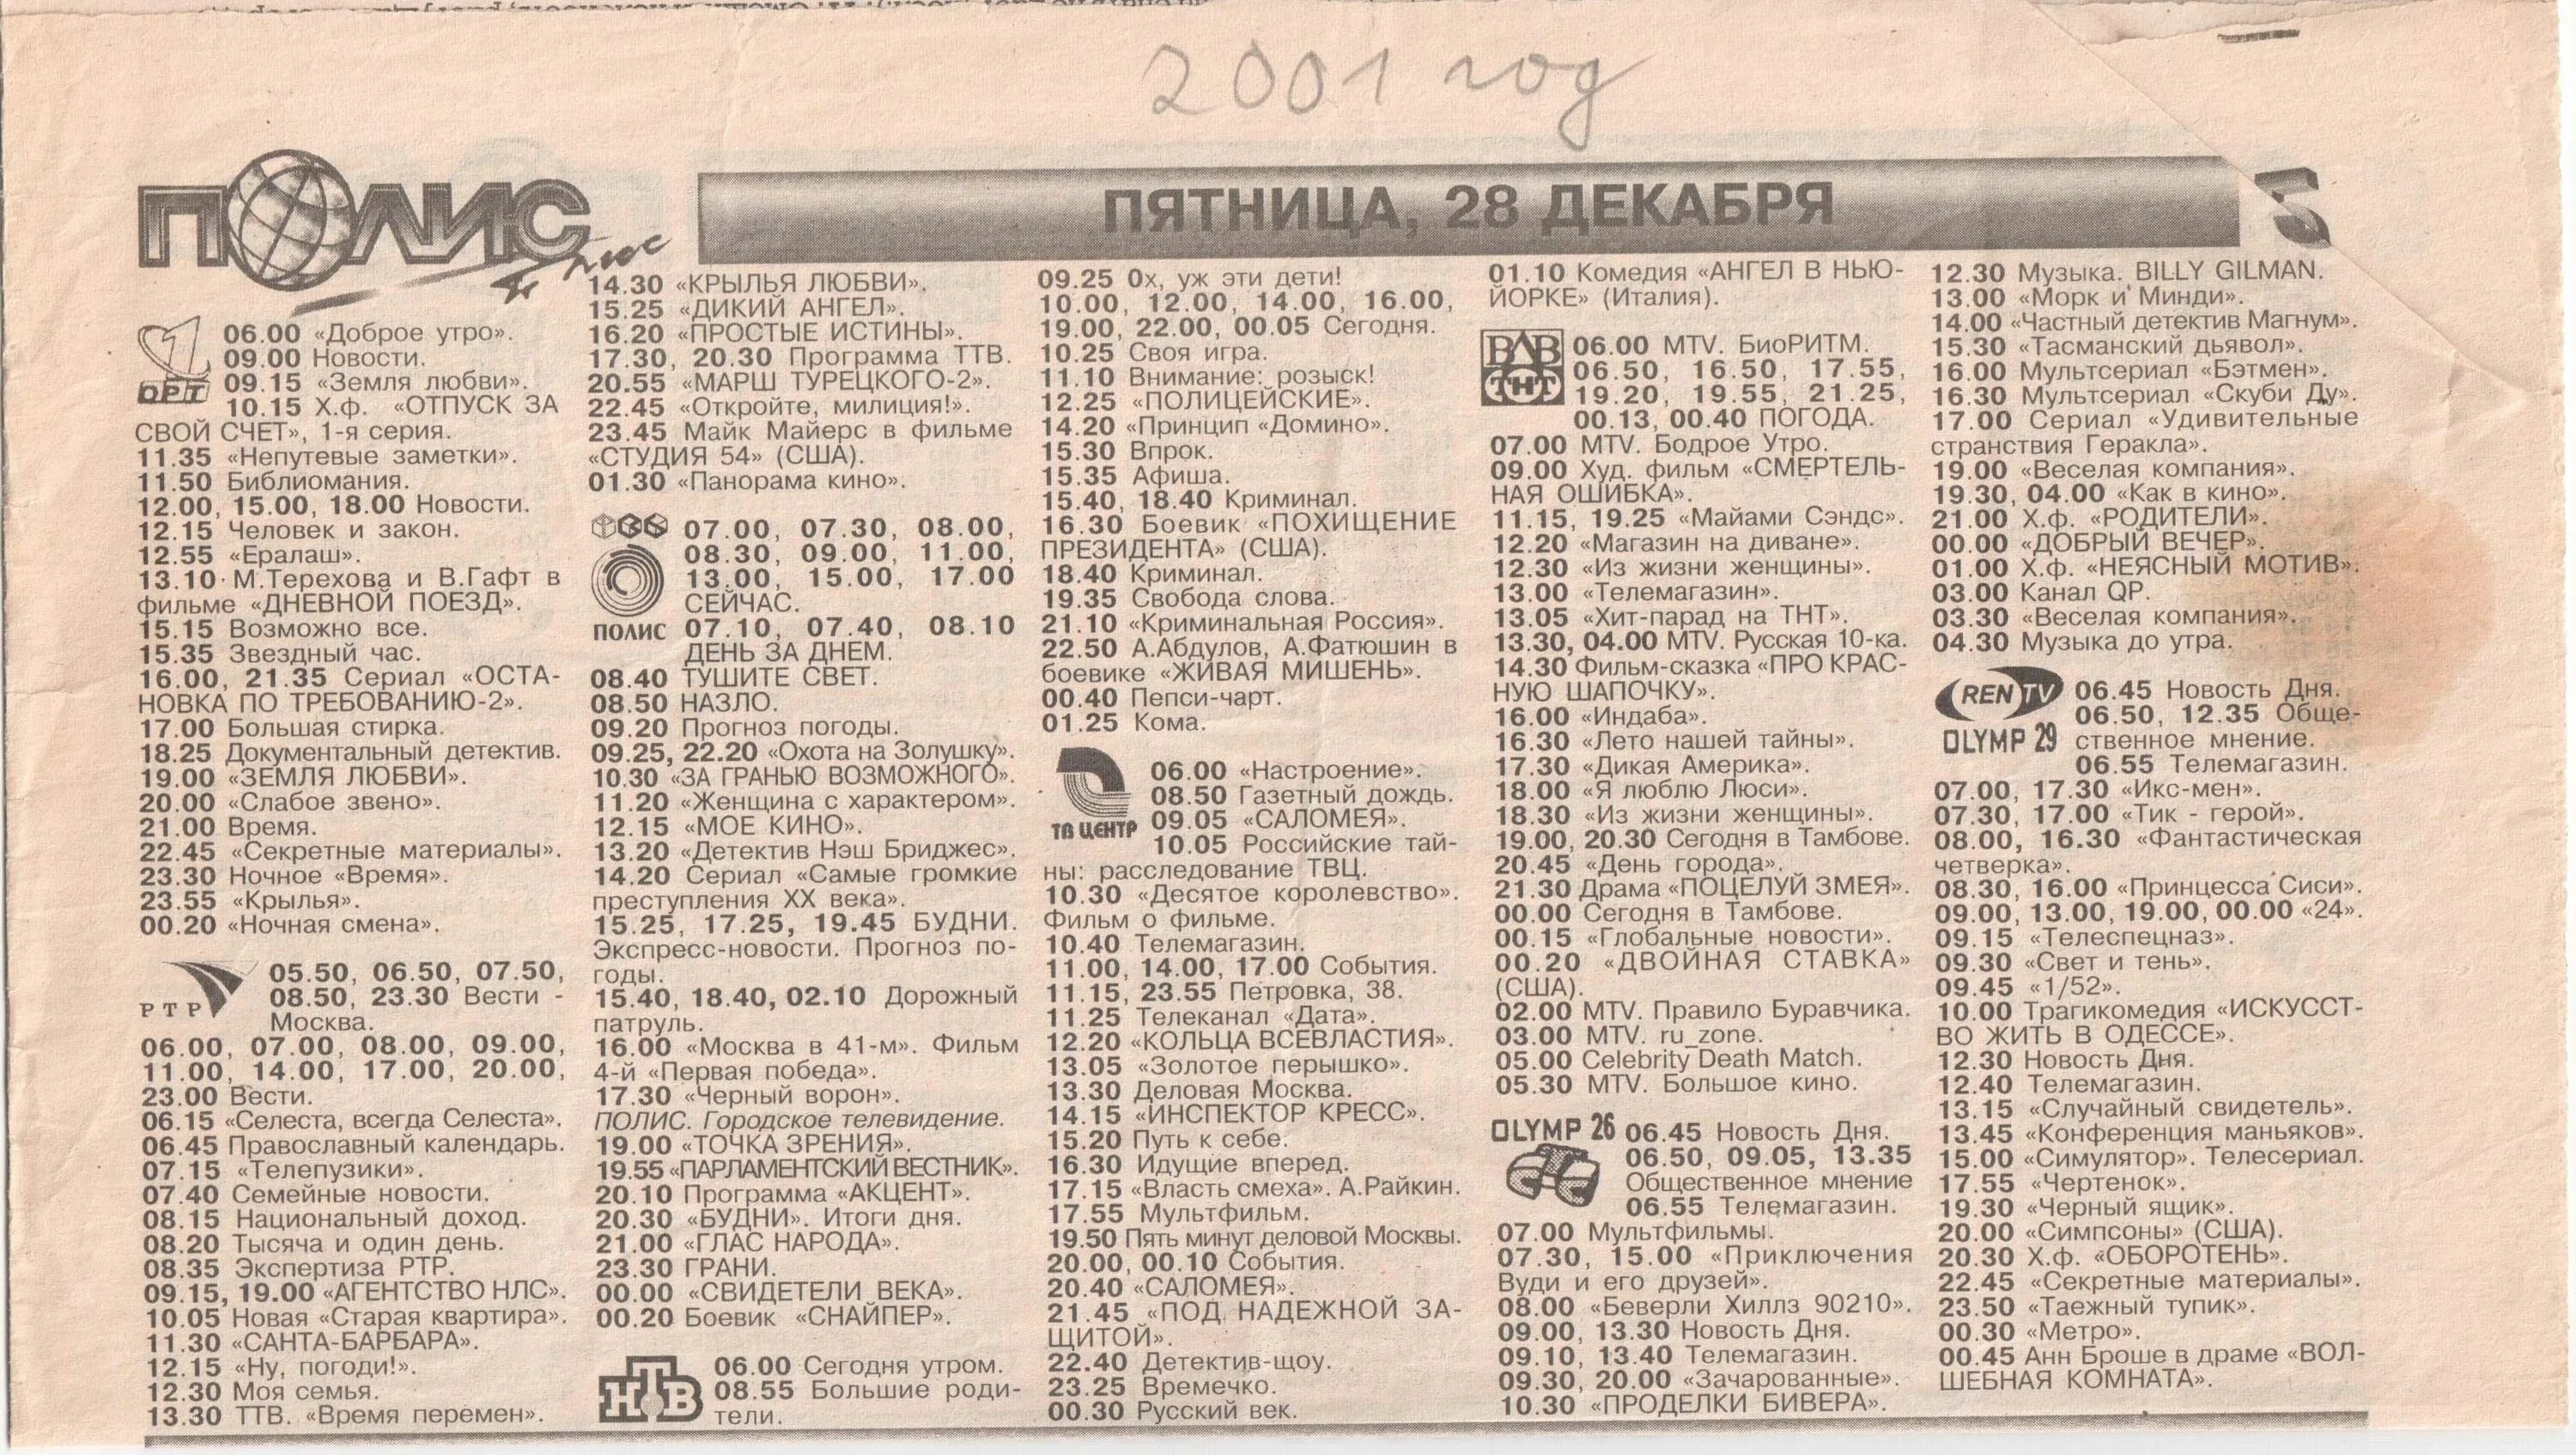 2001 год
ПОЛИС плюс
ПЯТНИЦА, 28 ДЕКАБРЯ
5
ОРТ
06.00 «Доброе утро».
09.00 Новости.
09.15 «Земля любви».
10.15 Х.ф. «ОТПУСК ЗА
СВОЙ СЧЕТ», 1-я серия.
11.35 «Непутевые заметки».
11.50 Библиомания.
12.00, 15.00, 18.00 Новости.
12.15 Человек и закон.
12.55 «Ералаш».
13.10 М.Терехова и В.Гафт в
фильме «ДНЕВНОЙ ПОЕЗД».
15.15 Возможно все.
15.35 Звездный час.
16.00, 21.35 Сериал «ОСТА-
НОВКА ПО ТРЕБОВАНИЮ-2».
17.00 Большая стирка.
18.25 Документальный детектив.
19.00 «ЗЕМЛЯ ЛЮБВИ».
20.00 «Слабое звено».
21.00 Время.
22.45 «Секретные материалы».
23.30 Ночное «Время».
23.55 «Крылья».
00.20 «Ночная смена».
РТР
05.50, 06.50, 07.50,
08.50, 23.30 Вести -
Москва.
06.00, 07.00, 08.00, 09.00,
11.00, 14.00, 17.00, 20.00,
23.00 Вести.
06.15 «Селеста, всегда Селеста».
06.45 Православный календарь.
07.15 «Телепузики».
07.40 Семейные новости.
08.15 Национальный доход.
08.20 Тысяча и один день.
08.35 Экспертиза РТР.
09.15, 19.00 «АГЕНТСТВО НЛС».
10.05 Новая «Старая квартира».
11.30 «САНТА-БАРБАРА».
12.15 «Ну, погоди!».
12.30 Моя семья.
13.30 ТТВ. «Время перемен».
14.30 «КРЫЛЬЯ ЛЮБВИ».
15.25 «ДИКИЙ АНГЕЛ».
16.20 «ПРОСТЫЕ ИСТИНЫ».
17.30, 20.30 Программа ТТВ.
20.55 «МАРШ ТУРЕЦКОГО-2».
22.45 «Откройте, милиция!».
23.45 Майк Майерс в фильме
«СТУДИЯ 54» (США).
01.30 «Панорама кино».
ТВ6
ПОЛИС
07.00, 07.30, 08.00,
08.30, 09.00, 11.00,
13.00, 15.00, 17.00
СЕЙЧАС.
07.10, 07.40, 08.10
ДЕНЬ ЗА ДНЕМ.
08.40 ТУШИТЕ СВЕТ.
08.50 НАЗЛО.
09.20 Прогноз погоды.
09.25, 22.20 «Охота на Золушку».
10.30 «ЗА ГРАНЬЮ ВОЗМОЖНОГО».
11.20 «Женщина с характером».
12.15 «МОЕ КИНО».
13.20 «Детектив Нэш Бриджес».
14.20 Сериал «Самые громкие
преступления XX века».
15.25, 17.25, 19.45 БУДНИ.
Экспресс-новости. Прогноз по-
годы.
15.40, 18.40, 02.10 Дорожный
патруль.
16.00 «Москва в 41-м». Фильм
4-й «Первая победа».
17.30 «Черный ворон».
ПОЛИС. Городское телевидение.
19.00 «ТОЧКА ЗРЕНИЯ».
19.55 «ПАРЛАМЕНТСКИЙ ВЕСТНИК».
20.10 Программа «АКЦЕНТ».
20.30 «БУДНИ». Итоги дня.
21.00 «ГЛАС НАРОДА».
23.30 ГРАНИ.
00.00 «СВИДЕТЕЛИ ВЕКА».
00.20 Боевик «СНАЙПЕР».
НТВ
06.00 Сегодня утром.
08.55 Большие роди-
тели.
09.25 Ох, уж эти дети!
10.00, 12.00, 14.00, 16.00,
19.00, 22.00, 00.05 Сегодня.
10.25 Своя игра.
11.10 Внимание: розыск!
12.25 «ПОЛИЦЕЙСКИЕ».
14.20 «Принцип «Домино».
15.30 Впрок.
15.35 Афиша.
15.40, 18.40 Криминал.
16.30 Боевик «ПОХИЩЕНИЕ
ПРЕЗИДЕНТА» (США).
18.40 Криминал.
19.35 Свобода слова.
21.10 «Криминальная Россия».
22.50 А.Абдулов, А.Фатюшин в
боевике «ЖИВАЯ МИШЕНЬ».
00.40 Пепси-чарт.
01.25 Кома.
ТВ ЦЕНТР
06.00 «Настроение».
08.50 Газетный дождь.
09.05 «САЛОМЕЯ».
10.05 Российские тай-
ны: расследование ТВЦ.
10.30 «Десятое королевство».
Фильм о фильме.
10.40 Телемагазин.
11.00, 14.00, 17.00 События.
11.15, 23.55 Петровка, 38.
11.25 Телеканал «Дата».
12.20 «КОЛЬЦА ВСЕВЛАСТИЯ».
13.05 «Золотое перышко».
13.30 Деловая Москва.
14.15 «ИНСПЕКТОР КРЕСС».
15.20 Путь к себе.
16.30 Идущие вперед.
17.15 «Власть смеха». А.Райкин.
17.55 Мультфильм.
19.50 Пять минут деловой Москвы.
20.00, 00.10 События.
20.40 «САЛОМЕЯ».
21.45 «ПОД НАДЕЖНОЙ ЗА-
ЩИТОЙ».
22.40 Детектив-шоу.
23.25 Времечко.
00.30 Русский век.
01.10 Комедия «АНГЕЛ В НЬЮ-
ЙОРКЕ» (Италия).
ТНТ
06.00 MTV. БиоРИТМ.
06.50, 16.50, 17.55,
19.20, 19.55, 21.25,
00.13, 00.40 ПОГОДА.
07.00 MTV. Бодрое Утро.
09.00 Худ. фильм «СМЕРТЕЛЬ-
НАЯ ОШИБКА».
11.15, 19.25 «Майами Сэндс».
12.20 «Магазин на диване».
12.30 «Из жизни женщины».
13.00 «Телемагазин».
13.05 «Хит-парад на ТНТ».
13.30, 04.00 MTV. Русская 10-ка.
14.30 Фильм-сказка «ПРО КРАС-
НУЮ ШАПОЧКУ».
16.00 «Индаба».
16.30 «Лето нашей тайны».
17.30 «Дикая Америка».
18.00 «Я люблю Люси».
18.30 «Из жизни женщины».
19.00, 20.30 Сегодня в Тамбове.
20.45 «День города».
21.30 Драма «ПОЦЕЛУЙ ЗМЕЯ».
00.00 Сегодня в Тамбове.
00.15 «Глобальные новости».
00.20 «ДВОЙНАЯ СТАВКА»
(США).
02.00 MTV. Правило Буравчика.
03.00 MTV. ru_zone.
05.00 Celebrity Death Match.
05.30 MTV. Большое кино.
OLYMP 26
06.45 Новость Дня.
06.50, 09.05, 13.35
Общественное мнение
06.55 Телемагазин.
07.00 Мультфильмы.
07.30, 15.00 «Приключения
Вуди и его друзей».
08.00 «Беверли Хиллз 90210».
09.00, 13.30 Новость Дня.
09.10, 13.40 Телемагазин.
09.30, 20.00 «Зачарованные».
10.30 «ПРОДЕЛКИ БИВЕРА».
12.30 Музыка. BILLY GILMAN.
13.00 «Морк и Минди».
14.00 «Частный детектив Магнум».
15.30 «Тасманский дьявол».
16.00 Мультсериал «Бэтмен».
16.30 Мультсериал «Скуби Ду».
17.00 Сериал «Удивительные
странствия Геракла».
19.00 «Веселая компания».
19.30, 04.00 «Как в кино».
21.00 Х.ф. «РОДИТЕЛИ».
00.00 «ДОБРЫЙ ВЕЧЕР».
01.00 Х.ф. «НЕЯСНЫЙ МОТИВ».
03.00 Канал QP.
03.30 «Веселая компания».
04.30 Музыка до утра.
REN TV
OLYMP 29
06.45 Новость Дня.
06.50, 12.35 Обще-
ственное мнение.
06.55 Телемагазин.
07.00, 17.30 «Икс-мен».
07.30, 17.00 «Тик - герой».
08.00, 16.30 «Фантастическая
четверка».
08.30, 16.00 «Принцесса Сиси».
09.00, 13.00, 19.00, 00.00 «24».
09.15 «Телеспецназ».
09.30 «Свет и тень».
09.45 «1/52».
10.00 Трагикомедия «ИСКУССТ-
ВО ЖИТЬ В ОДЕССЕ».
12.30 Новость Дня.
12.40 Телемагазин.
13.15 «Случайный свидетель».
13.45 «Конференция маньяков».
15.00 «Симулятор». Телесериал.
17.55 «Чертенок».
19.30 «Черный ящик».
20.00 «Симпсоны» (США).
20.30 Х.ф. «ОБОРОТЕНЬ».
22.45 «Секретные материалы».
23.50 «Таежный тупик».
00.30 «Метро».
00.45 Анн Броше в драме «ВОЛ-
ШЕБНАЯ КОМНАТА».